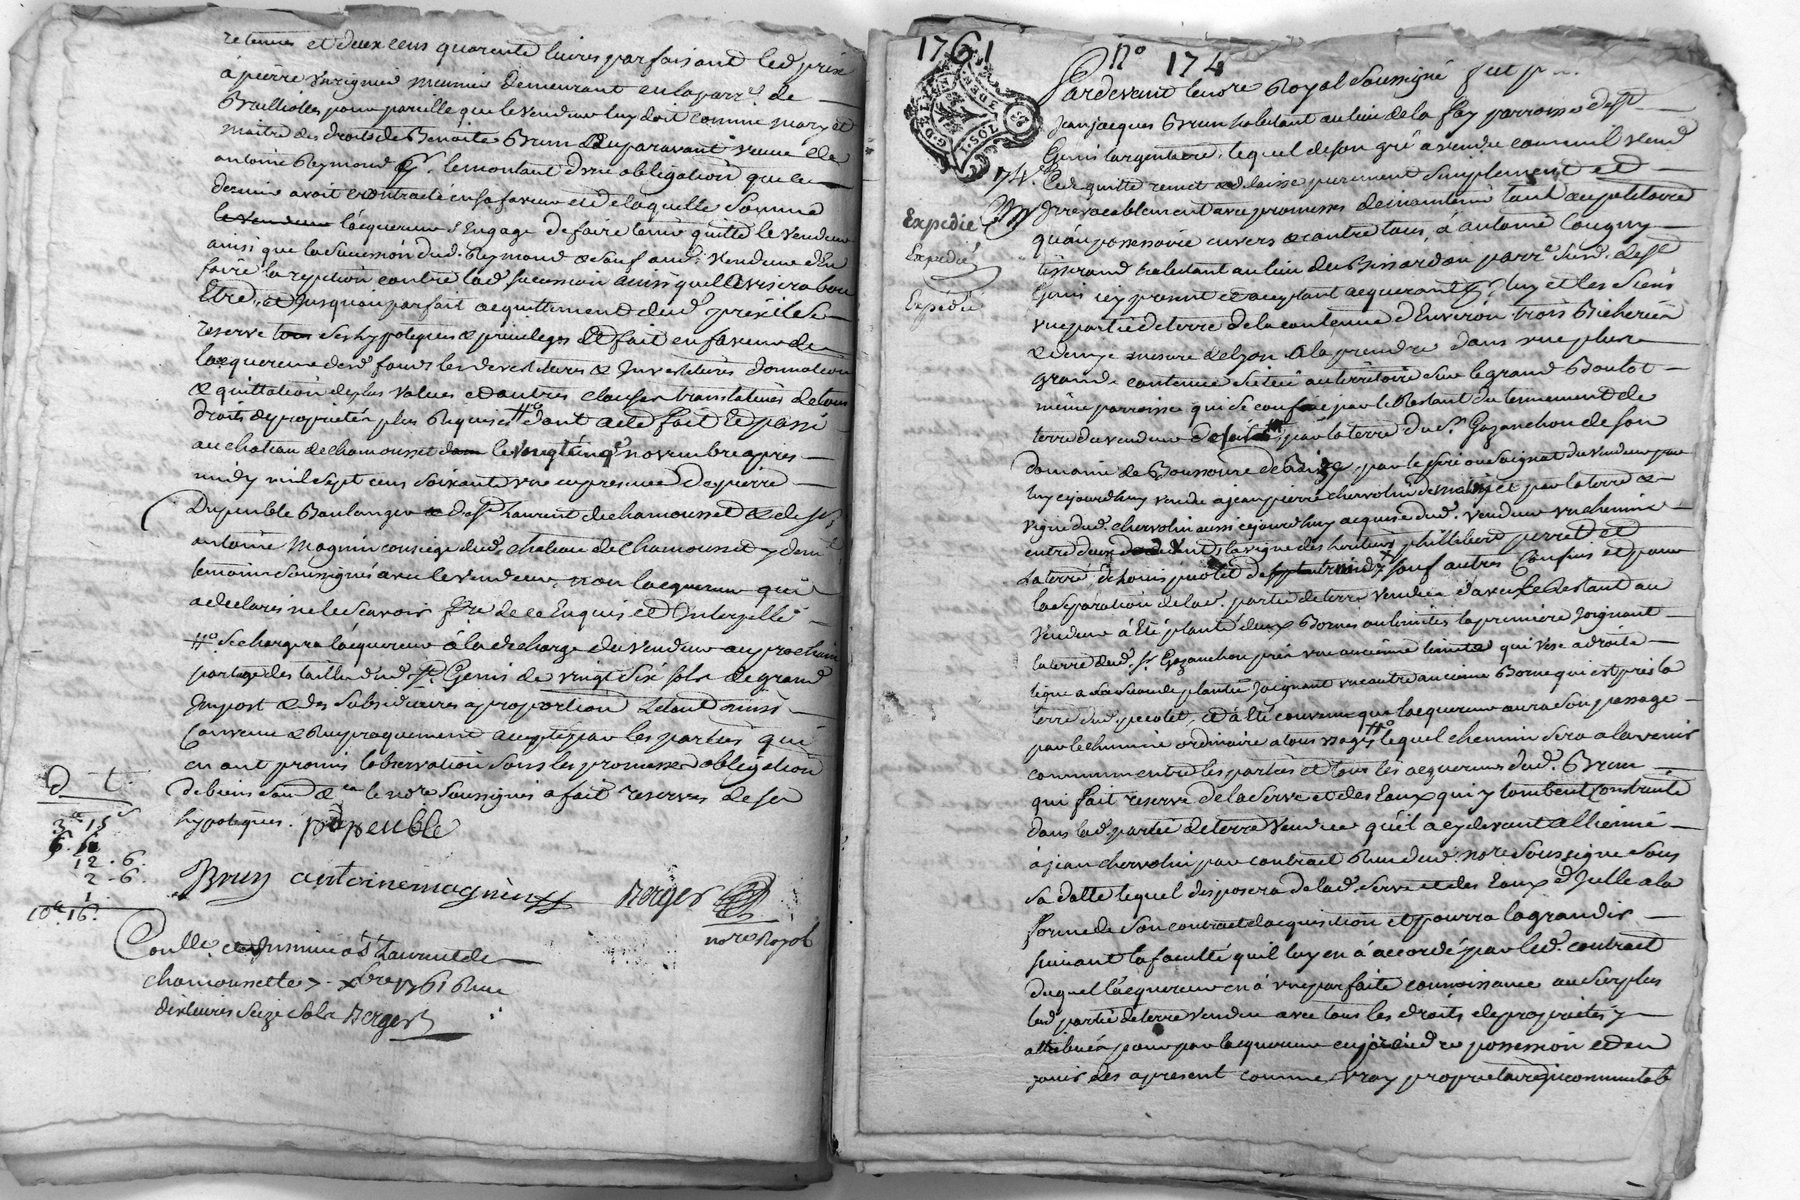 retenues et deux cens quarente livres parfaisant led prix
à pierre Varignié meunier demeurant en la parr.e de
Brullioles pour pareille que le vendeur luy doit comme mary et
maitre des droits de Benoite Brun auparavant veuve de
antoine Reymond le montant d'une obligation que ce
dernier avoit contracté en sa faveur et de laquelle somme
le vendeur l'acquereur s'engage de faire tenir quitte le vendeur
ainsi que la succession dud. Reymond & sauf aud. vendeur d'en
faire la repetition contre lad. succession ainsi qu'il avisera bon
Etre, et jusqu'au parfait acquittement dud. prix il se
reserve ses hypoteques & privileges Et fait en faveur de
lacquereur desd. fonds les devestitures & Investitures donnation
& quittation des plus values et autres clauses translatives de tous
droits de proprietés plus Requises # dont acte fait Et passé
au chateau de chamousset le vingt cinq novembre apres
midy mil sept cens soixante un en presence de pierre
Dupeuble Boulanger de St Laurent de chamousset & de Sr
antoine Magnin concierge dud. chateau de Chamousset y dem.t
temoins soussignés avec le vendeur, non lacquereur qui
a declaré ne le scavoir faire de ce Enquis et Interpellé
# se chargera l'acquereur à la decharge du vendeur au prochain
partage des tailles dud. St. Genis de vingt six sols de grand
Impost & des subsidiaires a proportion Le tout ainsi
Convenu & Reciproquement accepté par les parties qui
en ont promis l'observation sous les promesses obligation
de biens dont & ca le nore soussigné a fait reserves de ses
hypoteques. p dupeuble
Brun antoine magnin Berger
nore Royal
d t
3tt 15s
6.
12 . 6.
2 . 6.
1.
10tt 16s
Conllé et Insinué a St Laurent de
chamoussett le 7 xbre 1761 Reçu
dix livres seize sols Berger
1761
No 174
Pardevant le nore Royal soussigné fut p
Jean jacques Brun habitant au lieu de la fay parroisse de St
Genis largentiere, lequel de son gré a vendu comme il vend
Cede quitte remet & delaisse purement simplement et
Irrevocablement avec promesses de maintenir tant au petitoire
74
Expedié
Expedié
Expédié
qu'au possessoire envers & contre tous, à antoine Cougny
tisserand habitant au lieu du Brissardon parr.e Susd. de St
Genis icy present et acceptant acquerant pr luy et les siens
une partie de terre de la contenue d'Environ trois Bicherées
& demye mesure de Lyon a la prendre dans une plus
grande contenue située au territoire sur le grand Boulot
même parroisse qui se confine par le Restant du tennement de
terre du vendeur de soir, par la terre du Sr. Gazanchon de son
domaine de Boussoure de Bize, par le pré ou saignat du vendeur par
luy cejourd'huy vendu a jean pierre chervolin de matin et par la terre &
vigne dud. chervolin aussi cejourd'huy acquise dud. vendeur un chemin
entre deux la vigne des heritiers philibert perret et
la terre de Louis pucolet de sauf autres Confins et pour
la separation de lad. partie de terre vendue d'avec le Restant au
vendeur à été planté deux Bornes ou limites la premiere Joignant
la terre dud. Sr Gazanchon près une ancienne limite qui vise a droite
ligne a la seconde plantée Joignant une autre ancienne Borne qui est près la
terre dud. pucolet, et à été convenu que lacquereur aura son passage
par le chemin ordinaire a tous usages # lequel chemin sera a lavenir
commun entre les parties et tous les acquereurs dud. Brun
qui fait reserve de la Serve et des Eaux qui y tombent construite
dans lad. partie de terre vendue qu'il a cy devant allienné
à jean chervolin par contract Reçu dud. nore soussigné sous
sa datte lequel disposera de lad. serve et des Eaux d'Icelle a la
forme de son contract d'acquisition et pourra lagrandir
suivant la faculté qu'il luy en à accordé par led. contract
duquel l'acquereur en à une parfaite connoissance au surplus
lad. partie de terre vendue avec tous les droits de proprietés y
attribués pour par lacquereur en prendre possession et en
jouir dès apresent comme vray proprietaire incommutab